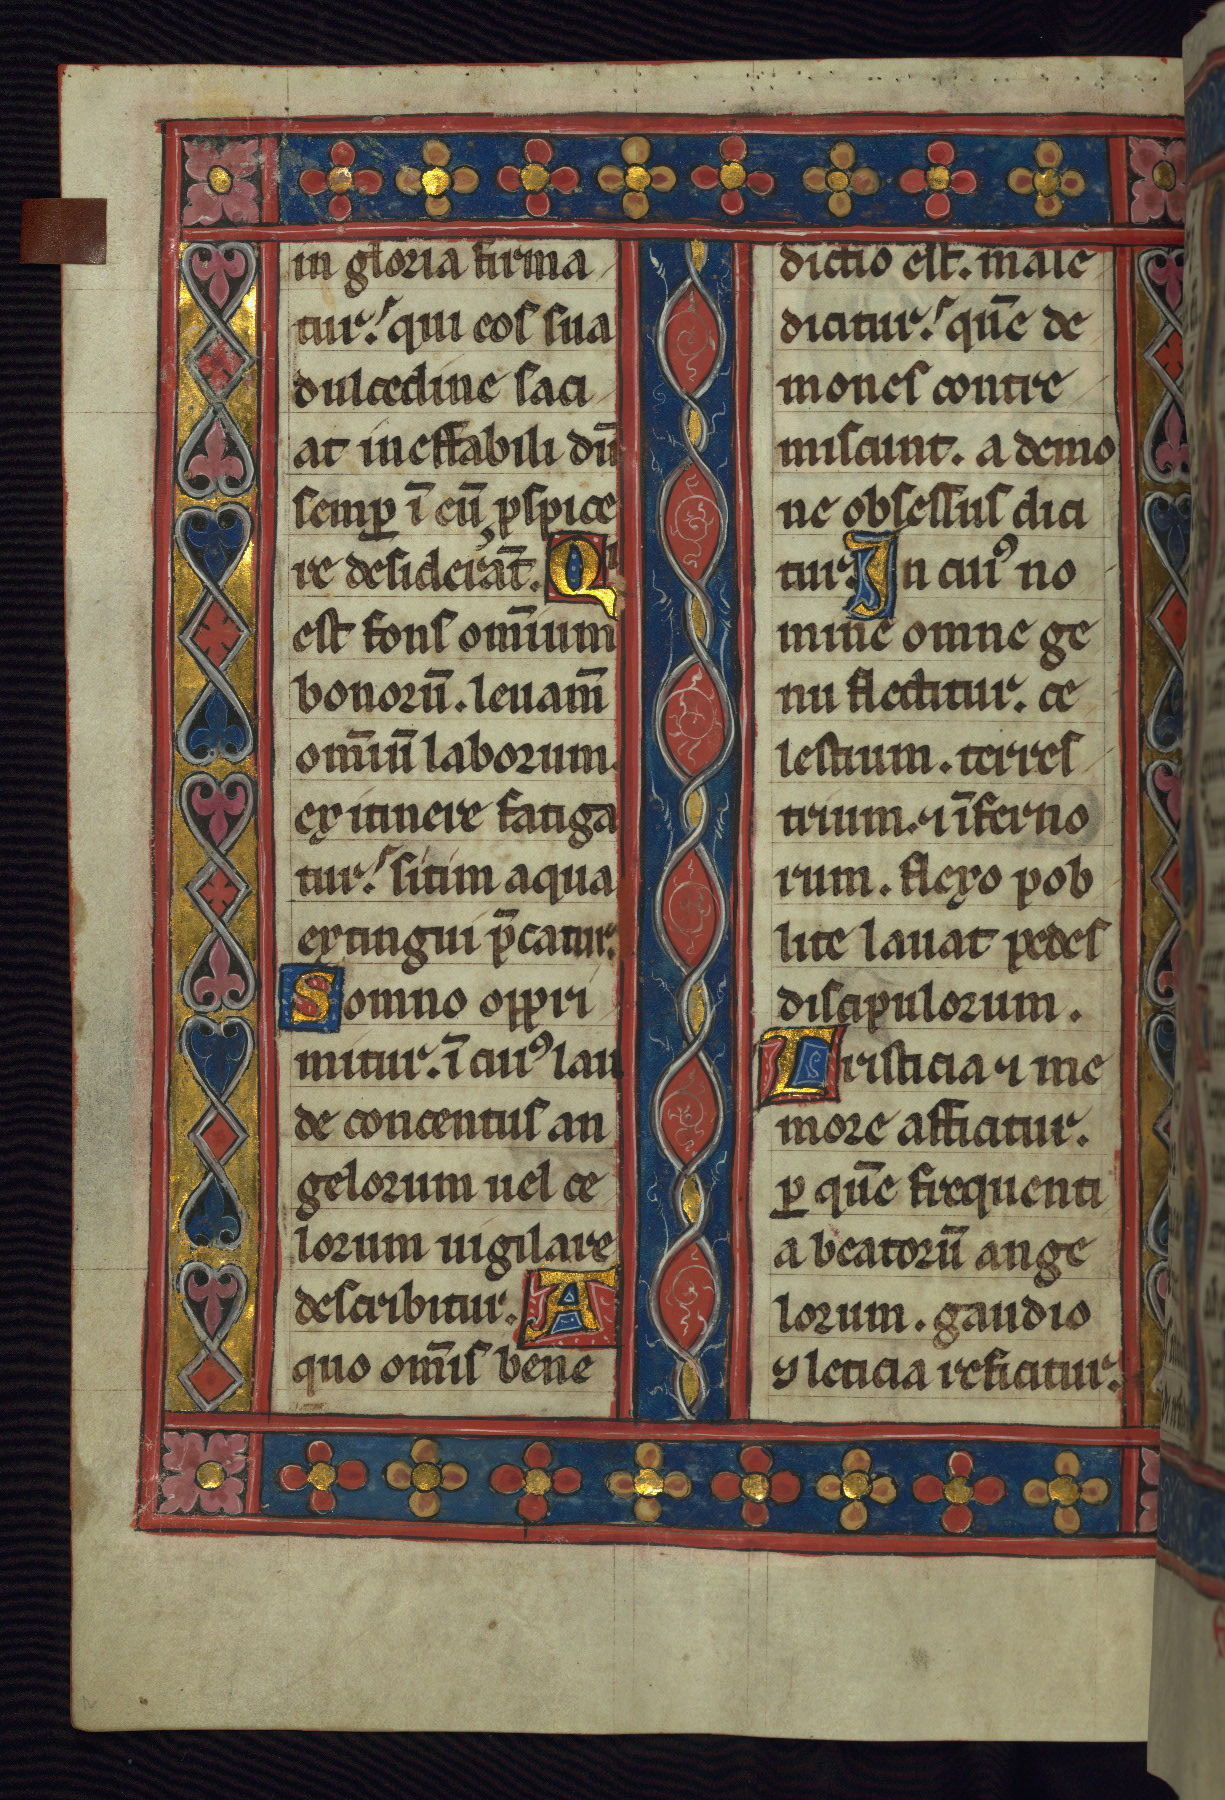 in gloria firma
tur. qui eos sua
dulcedine saci
at ineffabili dū
semꝑ ī eū ꝓspice
re desiderāt. Qi
est fons om̄ium
bonorū. leuam̄
om̄iū laborum.
ex itinere fatiga
tur. sitim aqua
extingui p̄catur.
Somno oppri
mitur. ī cuiꝰ lau
de concentus an
gelorum uel ce
lorum uigilare
describitur. A
quo om̄is bene
dictio est. male
dicitur. quē de
mones contre
miscunt. a demo
ne obsessus dici
tur. In cuiꝰ no
mine omne ge
nu flectitur. ce
lestium. terres
trium. ⁊ īferno
rum. flexo pob
lite lauat pedes
discipulorum.
Tristicia ⁊ me
rore afficitur.
ꝑ quē frequenti
a beatorū ange
lorum. gaudio
⁊ leticia reficitur.